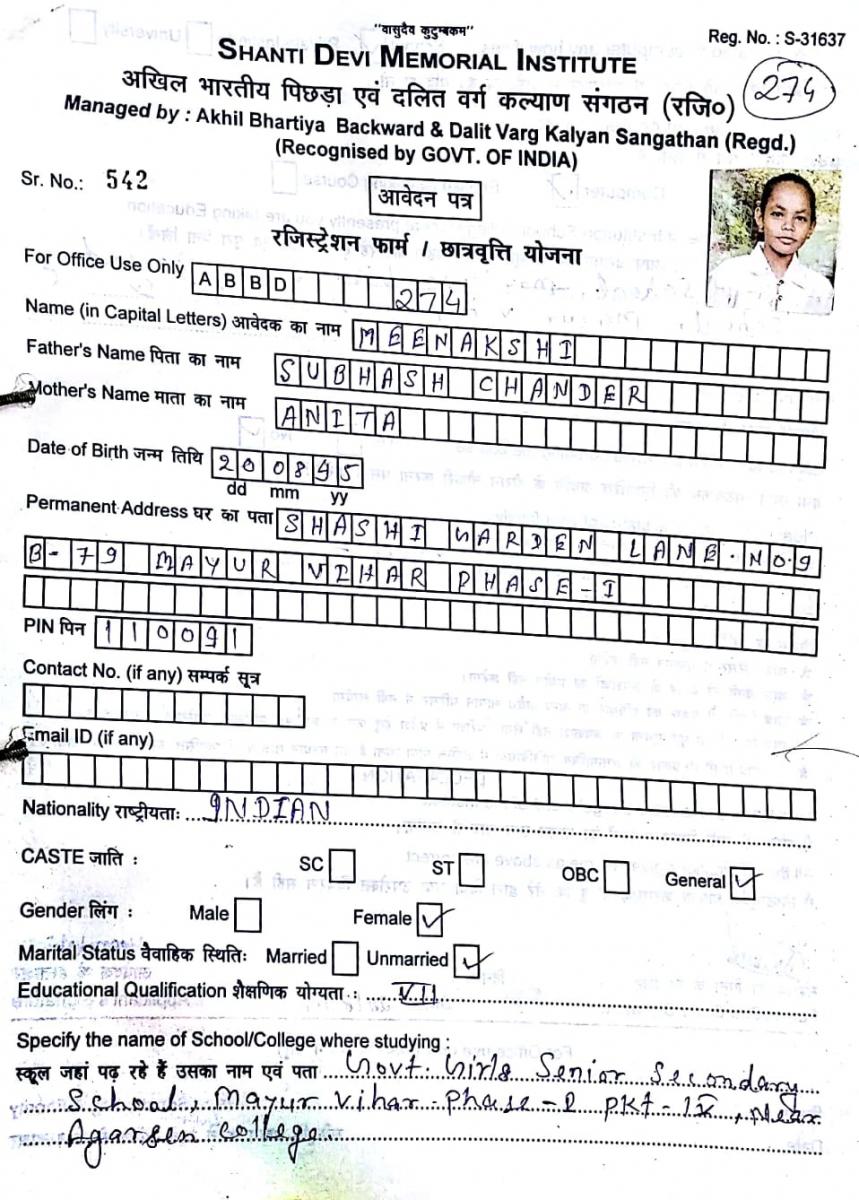 "वासुदैव कुटुम्बकम"
Reg. No. : S-31637
SHANTI DEVI MEMORIAL INSTITUTE
274
अखिल भारतीय पिछड़ा एवं दलित वर्ग कल्याण संगठन (रजि०)
Managed by : Akhil Bhartiya Backward & Dalit Varg Kalyan Sangathan (Regd.)
(Recognised by GOVT. OF INDIA)
Sr. No.: 542
आवेदन पत्र
रजिस्ट्रेशन फार्म / छात्रवृत्ति योजना
For Office Use Only ABBD 274
Name (in Capital Letters) आवेदक का नाम MEENAKSHI
Father's Name पिता का नाम SUBHASH CHANDER
Mother's Name माता का नाम ANITA
Date of Birth जन्म तिथि 200895
dd mm yy
Permanent Address घर का पता SHASHI GARDEN LANE.NO.9
B-79 MAYUR VIHAR PHASE-I
PIN पिन 110091
Contact No. (if any) सम्पर्क सूत्र
Email ID (if any)
Nationality राष्ट्रीयताः INDIAN
CASTE जाति : SC ST OBC General ✓
Gender लिंग : Male Female ✓
Marital Status वैवाहिक स्थितिः Married Unmarried ✓
Educational Qualification शैक्षणिक योग्यता : VII
Specify the name of School/College where studying :
स्कूल जहां पढ़ रहे हैं उसका नाम एवं पता Govt. Girls Senior Secondary
School, Mayur Vihar Phase-I PKt-IV, Near
Agarsen College.